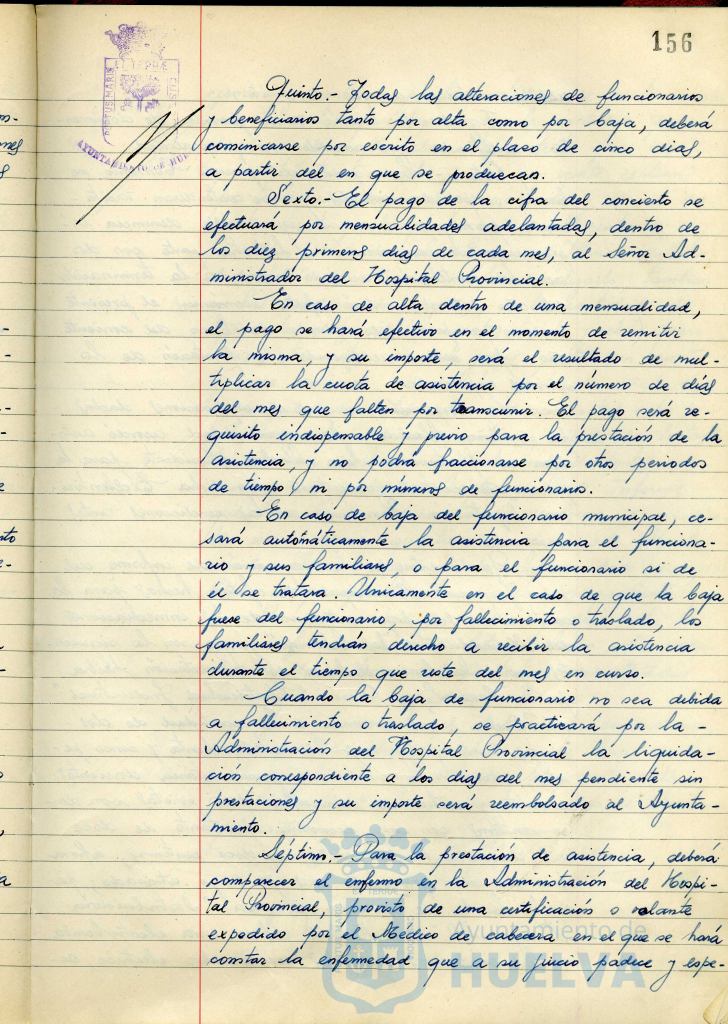 156
PORTUS MARIS ET TERRÆ CUSTODIA
AYUNTAMIENTO DE HUE
Quinto.- Todas las alteraciones de funcionarios
y beneficiarios tanto por alta como por baja, deberá
cominicarse por escrito en el plazo de cinco dias,
a partir del en que se produzcan.
Sexto.- El pago de la cifra del concierto se
efectuará por mensualidades adelantadas, dentro de
los diez primeros dias de cada mes, al Señor Ad-
ministrador del Hospital Provincial.
En caso de alta dentro de una mensualidad,
el pago se hará efectivo en el momento de remitir
la misma, y su importe, será el resultado de mul-
tiplicar la cuota de asistencia por el número de dias
del mes que falten por transcurrir. El pago será re-
quisito indispensable y previo para la prestación de la
asistencia, y no podrá fraccionarse por otros periodos
de tiempo, ni por números de funcionarios.
En caso de baja del funcionario municipal, ce-
sará automáticamente la asistencia para el funciona-
rio y sus familiares, o para el funcionario si de
él se tratara. Unicamente en el caso de que la baja
fuese del funcionario, por fallecimiento o traslado, los
familiares tendrán derecho a recibir la asistencia
durante el tiempo que reste del mes en curso.
Cuando la baja de funcionario no sea debida
a fallecimiento o traslado, se practicará por la-
Administración del Hospital Provincial la liquida-
ción correspondiente a los dias del mes pendiente sin
prestaciones y su importe será reembolsado al Ayunta-
miento.
Séptimo.- Para la prestación de asistencia, deberá
comparecer el enfermo en la Administración del Hospi-
tal Provincial, provisto de una certificación o volante
expedido por el Médico de cabecera en el que se hará
constar la enfermedad que a su juicio padece y espe-
Ayuntamiento de
HUELVA